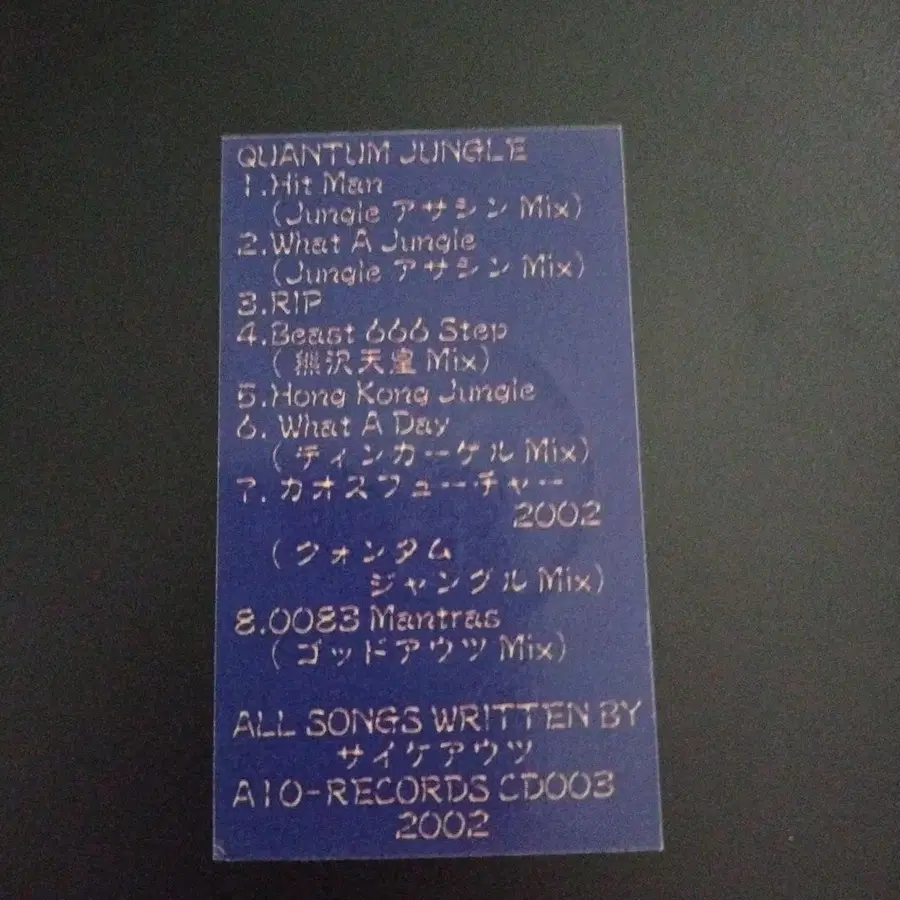 QUANTUM JUNGLE
1.Hit Man
(Jungle アサシン Mix)
2.What A Jungle
(Jungle アサシン Mix)
3.RIP
4.Beast 666 Step
(熊沢天皇 Mix)
5.Hong Kong Jungle
6. What A Day
(ティンカーゲル Mix)
7. カオスフューチャー
2002
(クォンタム
ジャングル Mix)
8.0083 Mantras
(ゴッドアウツ Mix)
ALL SONGS WRITTEN BY
サイケアウツ
A10-RECORDS CD003
2002